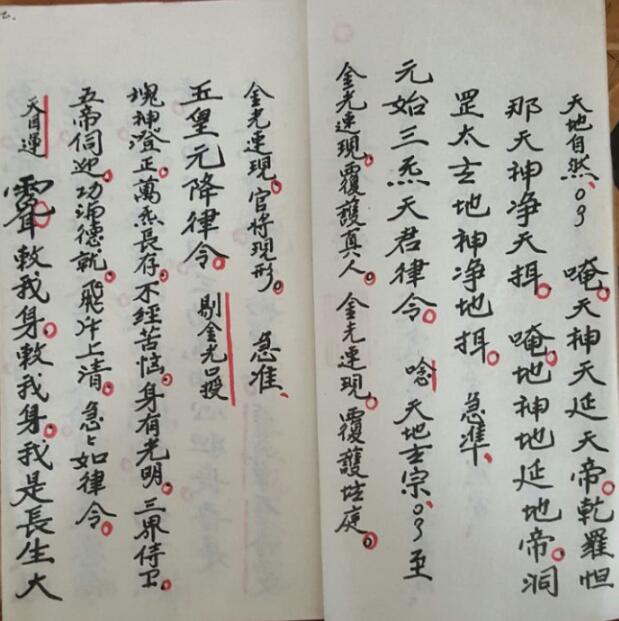 天地自然、唵。天神天延天帝。乾羅怛
那天神净天揖。唵。地神地延地帝。洞
罡太玄地神净地揖。急準、
元始三炁天君律令。唸天地玄宗、至
金光速現。覆護真人。金光速現。覆護坛庭。
金光速現。官将現形。急准、
玉皇元降律令。剔金光吕授
塊神澄正。萬炁長存。不經苦惱。身有光明。三界侍卫。
五帝伺迎。功満德就。飛升上清。急々如律令。
天目運 敕我身。敕我身。我是長生大